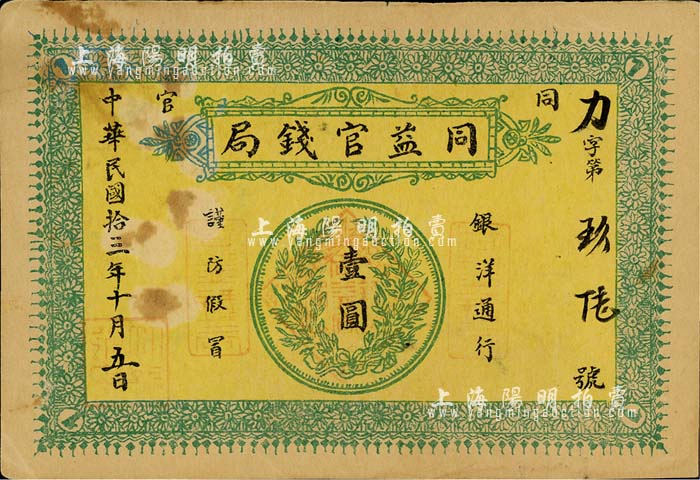 上海陽明拍賣
www.yangmingauction.com
同 官
同益官錢局
力字第玖陸號
銀洋通行
壹圓
謹防假冒
中華民國拾三年十月五日
上海陽明拍賣
www.yangmingauction.com
上海陽明拍賣
www.yangmingauction.com